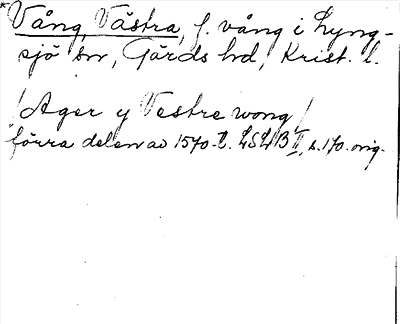 *Vång, Västra, f. vång i Lyng-
sjö sn, Gärds hd, Krist. l.
/Ager y Vestre wong/
förra delen av 1570-t. LSLB II, s. 170. orig.